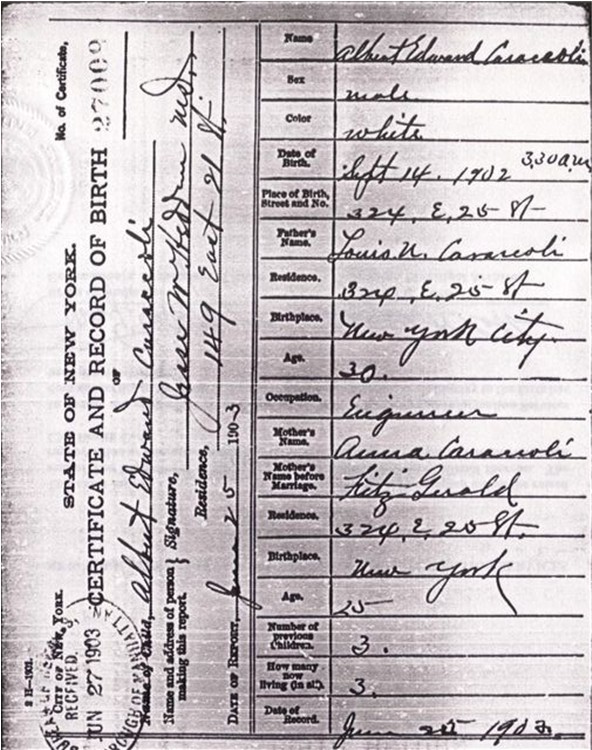 No. of Certificate,
27009
STATE OF NEW YORK.
CERTIFICATE AND RECORD OF BIRTH
OF
Name of Child, Albert Edward Caraccoli
Name and address of person making this report. } Signature, M.D.
Residence, 149 East 21 St.
DATE OF REPORT, June 25 1903
2 H-1901.
CITY OF NEW YORK.
RECEIVED.
JUN 27 1903
Name Albert Edward Caraccoli
Sex male
Color white
Date of Birth. Sept 14. 1902 3,30 a.m
Place of Birth, Street and No. 324, E, 25 St
Father's Name, Louis N. Caraccoli
Residence. 324, E, 25 St
Birthplace. New York City
Age. 30.
Occupation. Engineer
Mother's Name. Anna Caraccoli
Mother's Name before Marriage. Fitz Gerald
Residence. 324, E, 25 St.
Birthplace. New York
Age. 25
Number of previous Children. 3.
How many now living (in all). 3.
Date of Record. June 25 1903.